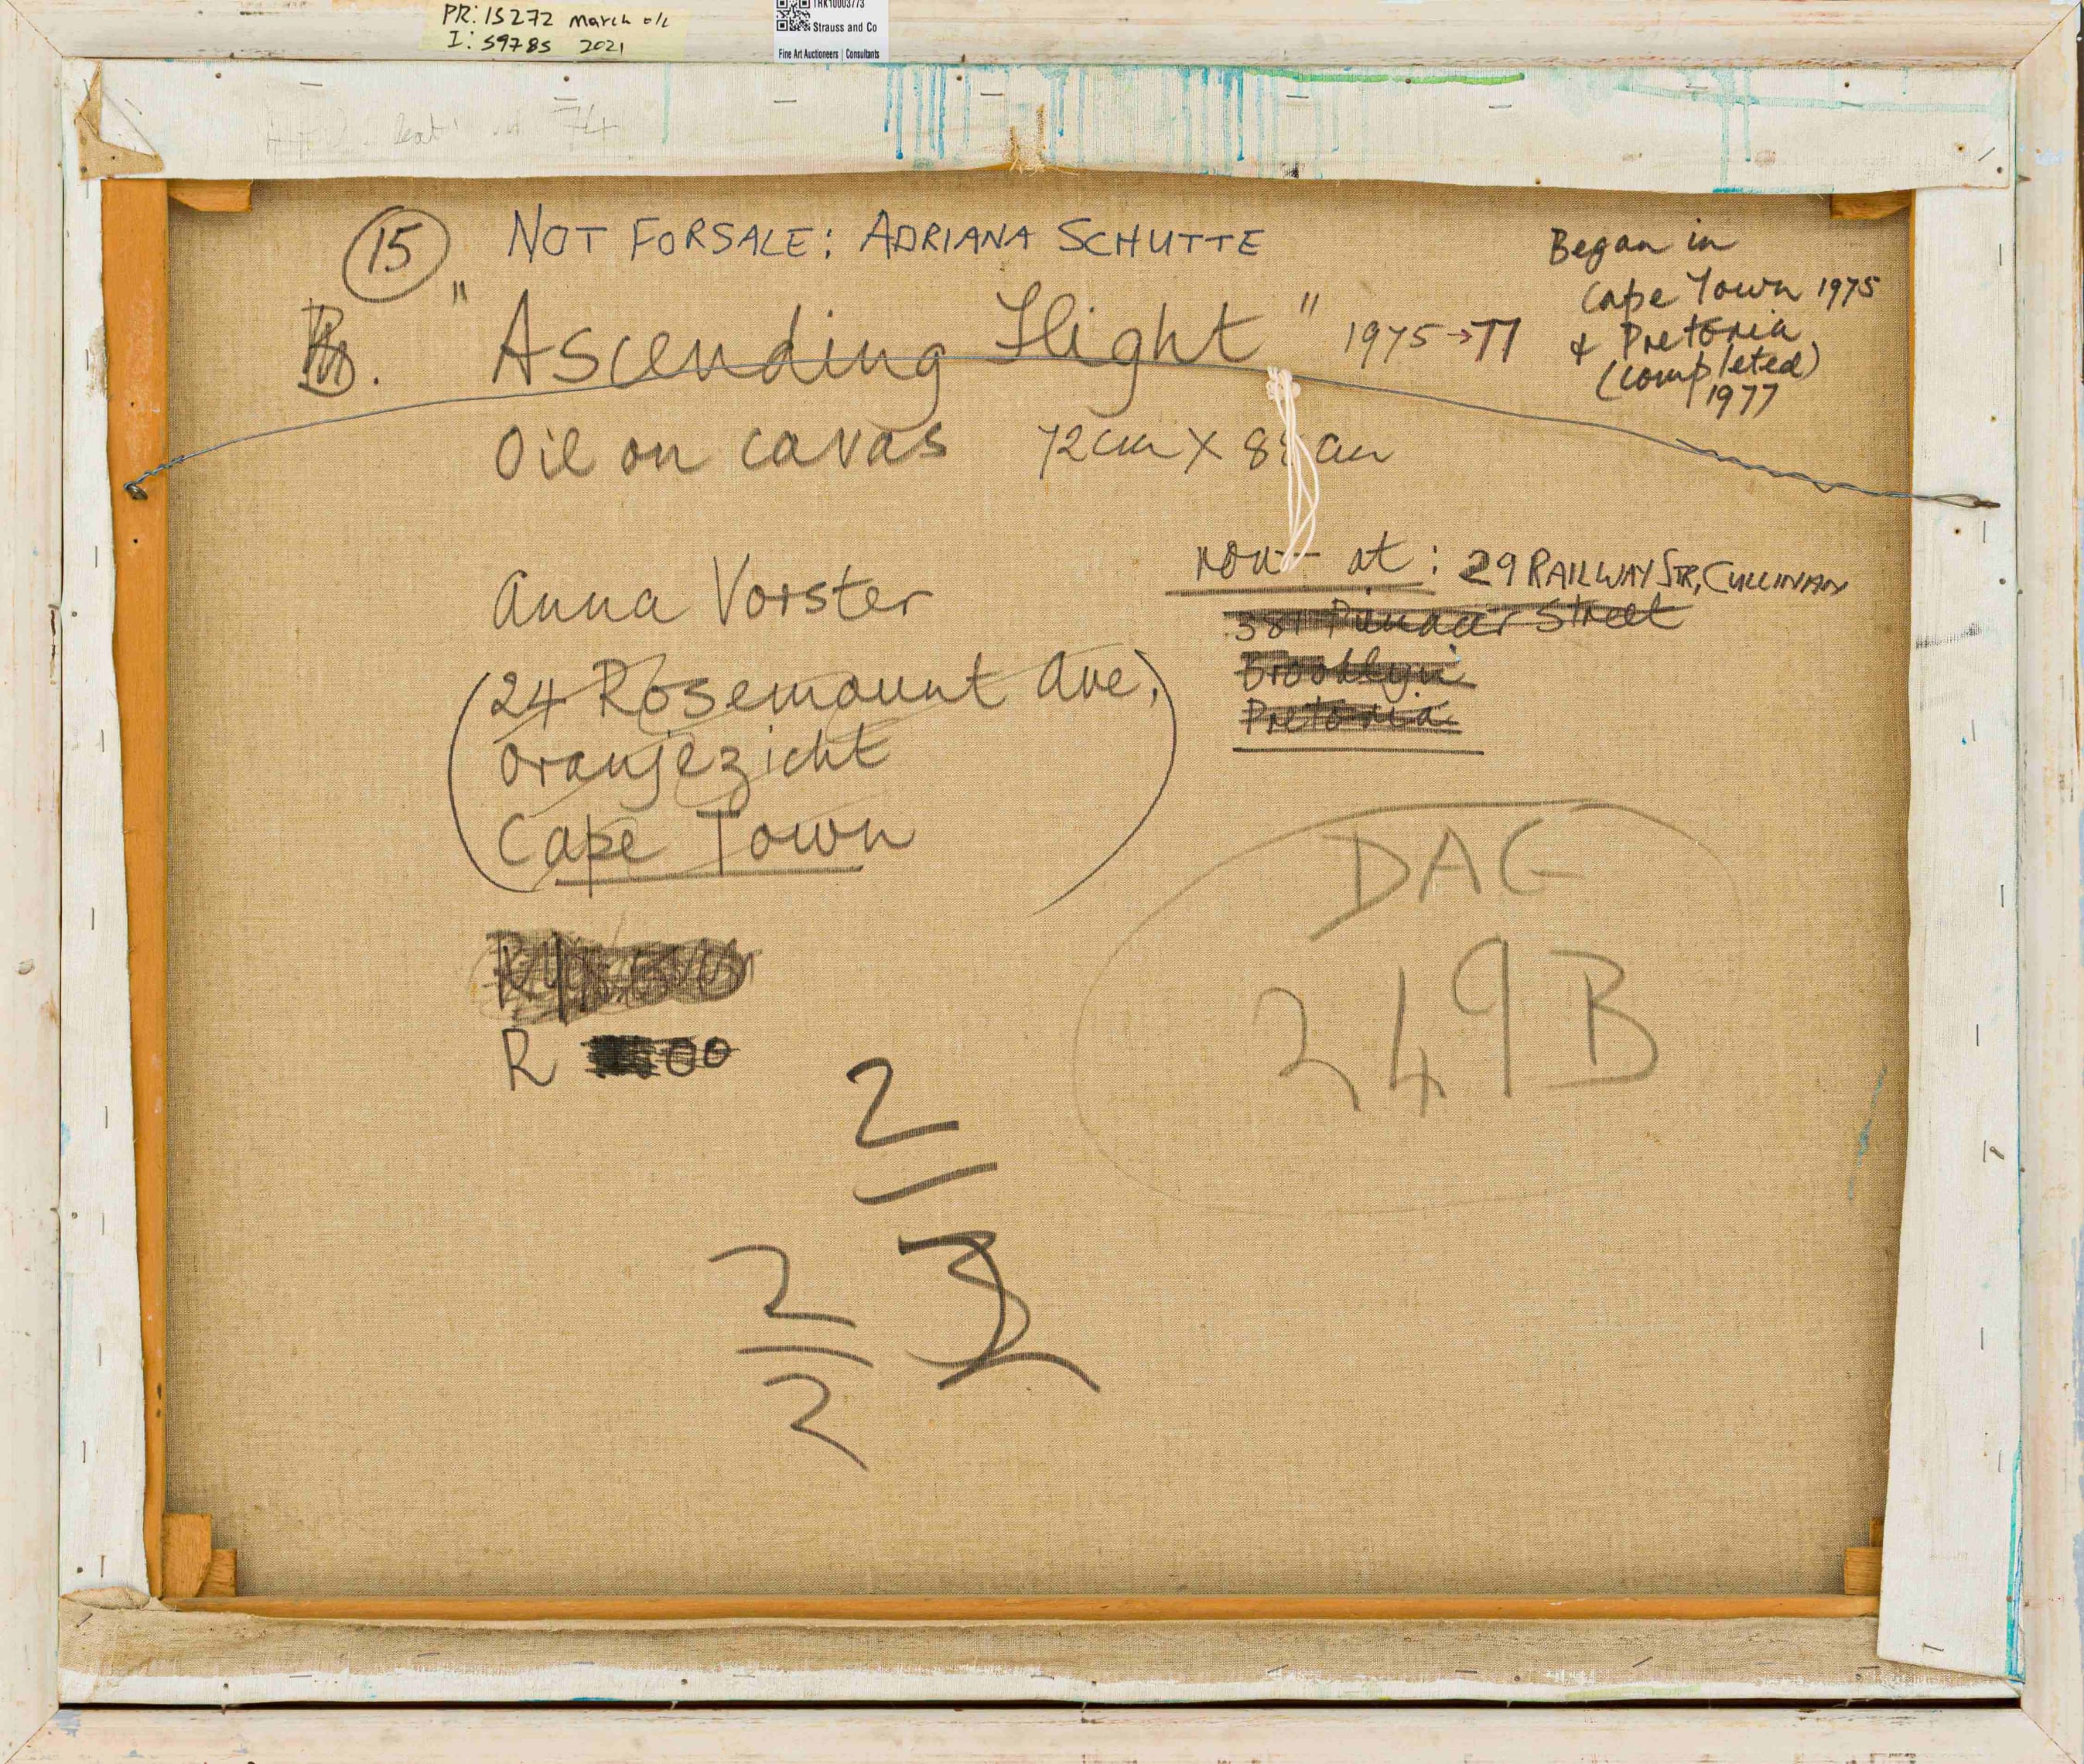 PR: 15272 March o/c
I: 59785 2021
TRK10003773
Strauss and Co
Fine Art Auctioneers | Consultants
74
15 NOT FORSALE: ADRIANA SCHUTTE
"Ascending Flight" 1975→77
Began in
Cape Town 1975
& Pretoria
(completed)
1977
Oil on cavas 72cm X 8 cm
Anna Vorster
(24 Rosemount Ave,
Oranjezicht
Cape Town)
now at: 29 RAILWAY STR, CULLINAN
381 Pienaar Street
Brooklyn
Pretoria
R
R 00
DAG
249B
2
2
2